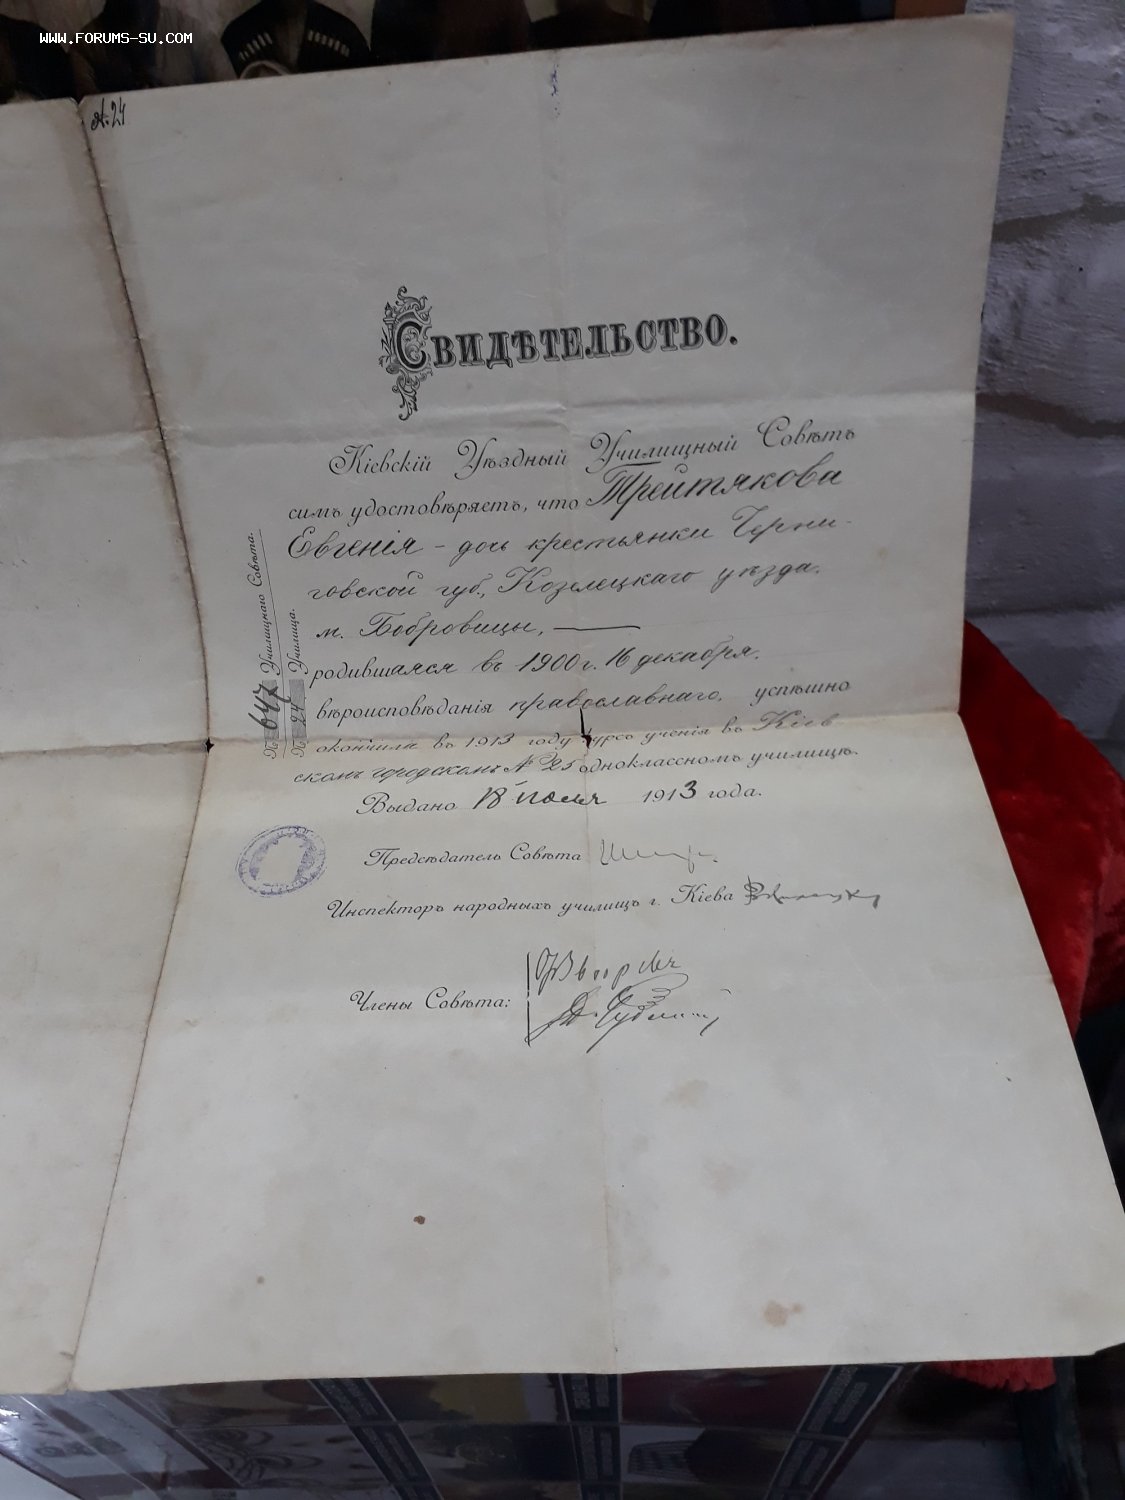 WWW.FORUMS-SU.COM
А. 24
Свидѣтельство.
Кіевскій Уѣздный Училищный Совѣтъ
симъ удостовѣряетъ, что Трейтякова
Евгенія - дочь крестьянки Черни-
говской губ., Козелецкаго уѣзда.
м. Бобровицы,
родившаяся въ 1900 г. 16 декабря.
вѣроисповѣданія православнаго, успѣшно
окончила въ 1913 году курсъ ученія въ Кіев-
скомъ городскомъ № 25 одноклассномъ училищѣ.
Выдано 18 1913 года.
Предсѣдатель Совѣта
Инспекторъ народныхъ училищъ г. Кіева
Члены Совѣта:
№ 647 Училищнаго Совѣта.
№ 24 Училища.